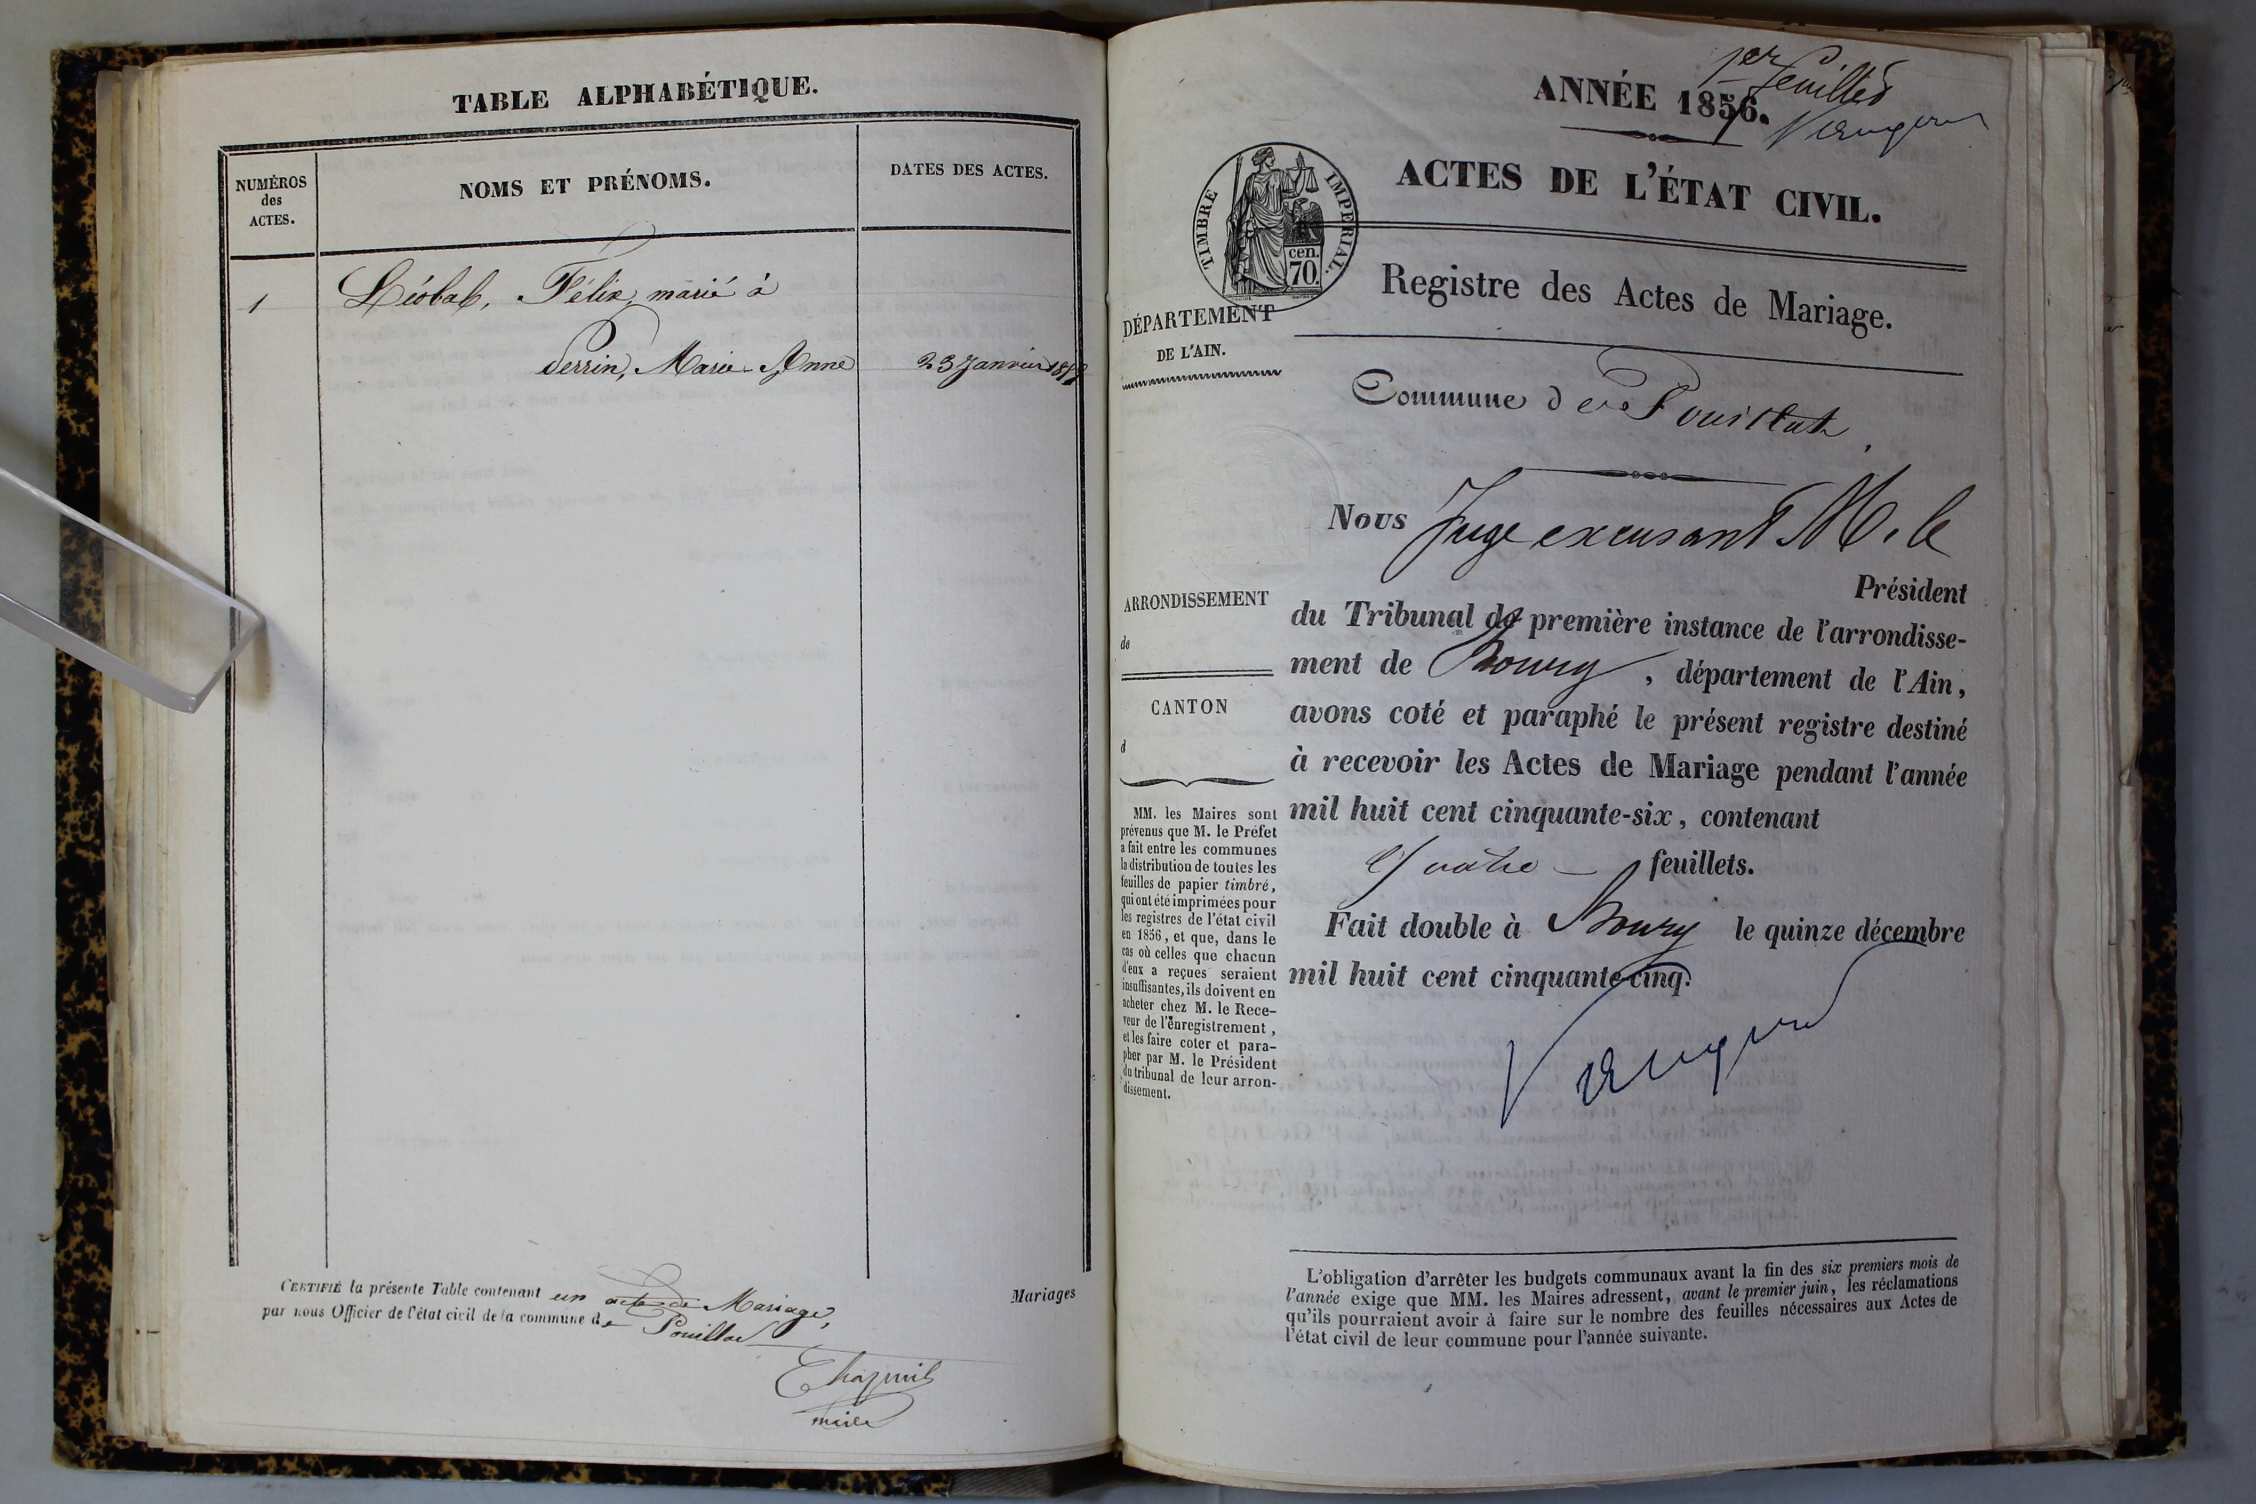 TABLE ALPHABÉTIQUE.
NUMÉROS
des
ACTES.
NOMS ET PRÉNOMS.
DATES DES ACTES.
1
Félix, marié à
Perrin, Marie-Anne
23 Janvier
CERTIFIÉ la présente Table contenant un acte de Mariage, Mariages
par nous Officier de l'état civil de la commune de Pouillat
maire
1er feuillet
ANNÉE 1856.
ACTES DE L'ÉTAT CIVIL.
TIMBRE IMPÉRIAL.
cen.
70.
Registre des Actes de Mariage.
DÉPARTEMENT
DE L'AIN.
Commune de Pouillat
Nous Juge excusant M. le
Président
du Tribunal de première instance de l'arrondisse-
ment de Bourg, département de l'Ain,
avons coté et paraphé le présent registre destiné
à recevoir les Actes de Mariage pendant l'année
mil huit cent cinquante-six, contenant
Quatre feuillets.
Fait double à Bourg le quinze décembre
mil huit cent cinquante-cinq.
ARRONDISSEMENT
de
CANTON
d
MM. les Maires sont
prévenus que M. le Préfet
a fait entre les communes
la distribution de toutes les
feuilles de papier timbré,
qui ont été imprimées pour
les registres de l'état civil
en 1856, et que, dans le
cas où celles que chacun
d'eux a reçues seraient
insuffisantes, ils doivent en
acheter chez M. le Rece-
veur de l'enregistrement,
et les faire coter et para-
pher par M. le Président
du tribunal de leur arron-
dissement.
L'obligation d'arrêter les budgets communaux avant la fin des six premiers mois de
l'année exige que MM. les Maires adressent, avant le premier juin, les réclamations
qu'ils pourraient avoir à faire sur le nombre des feuilles nécessaires aux Actes de
l'état civil de leur commune pour l'année suivante.